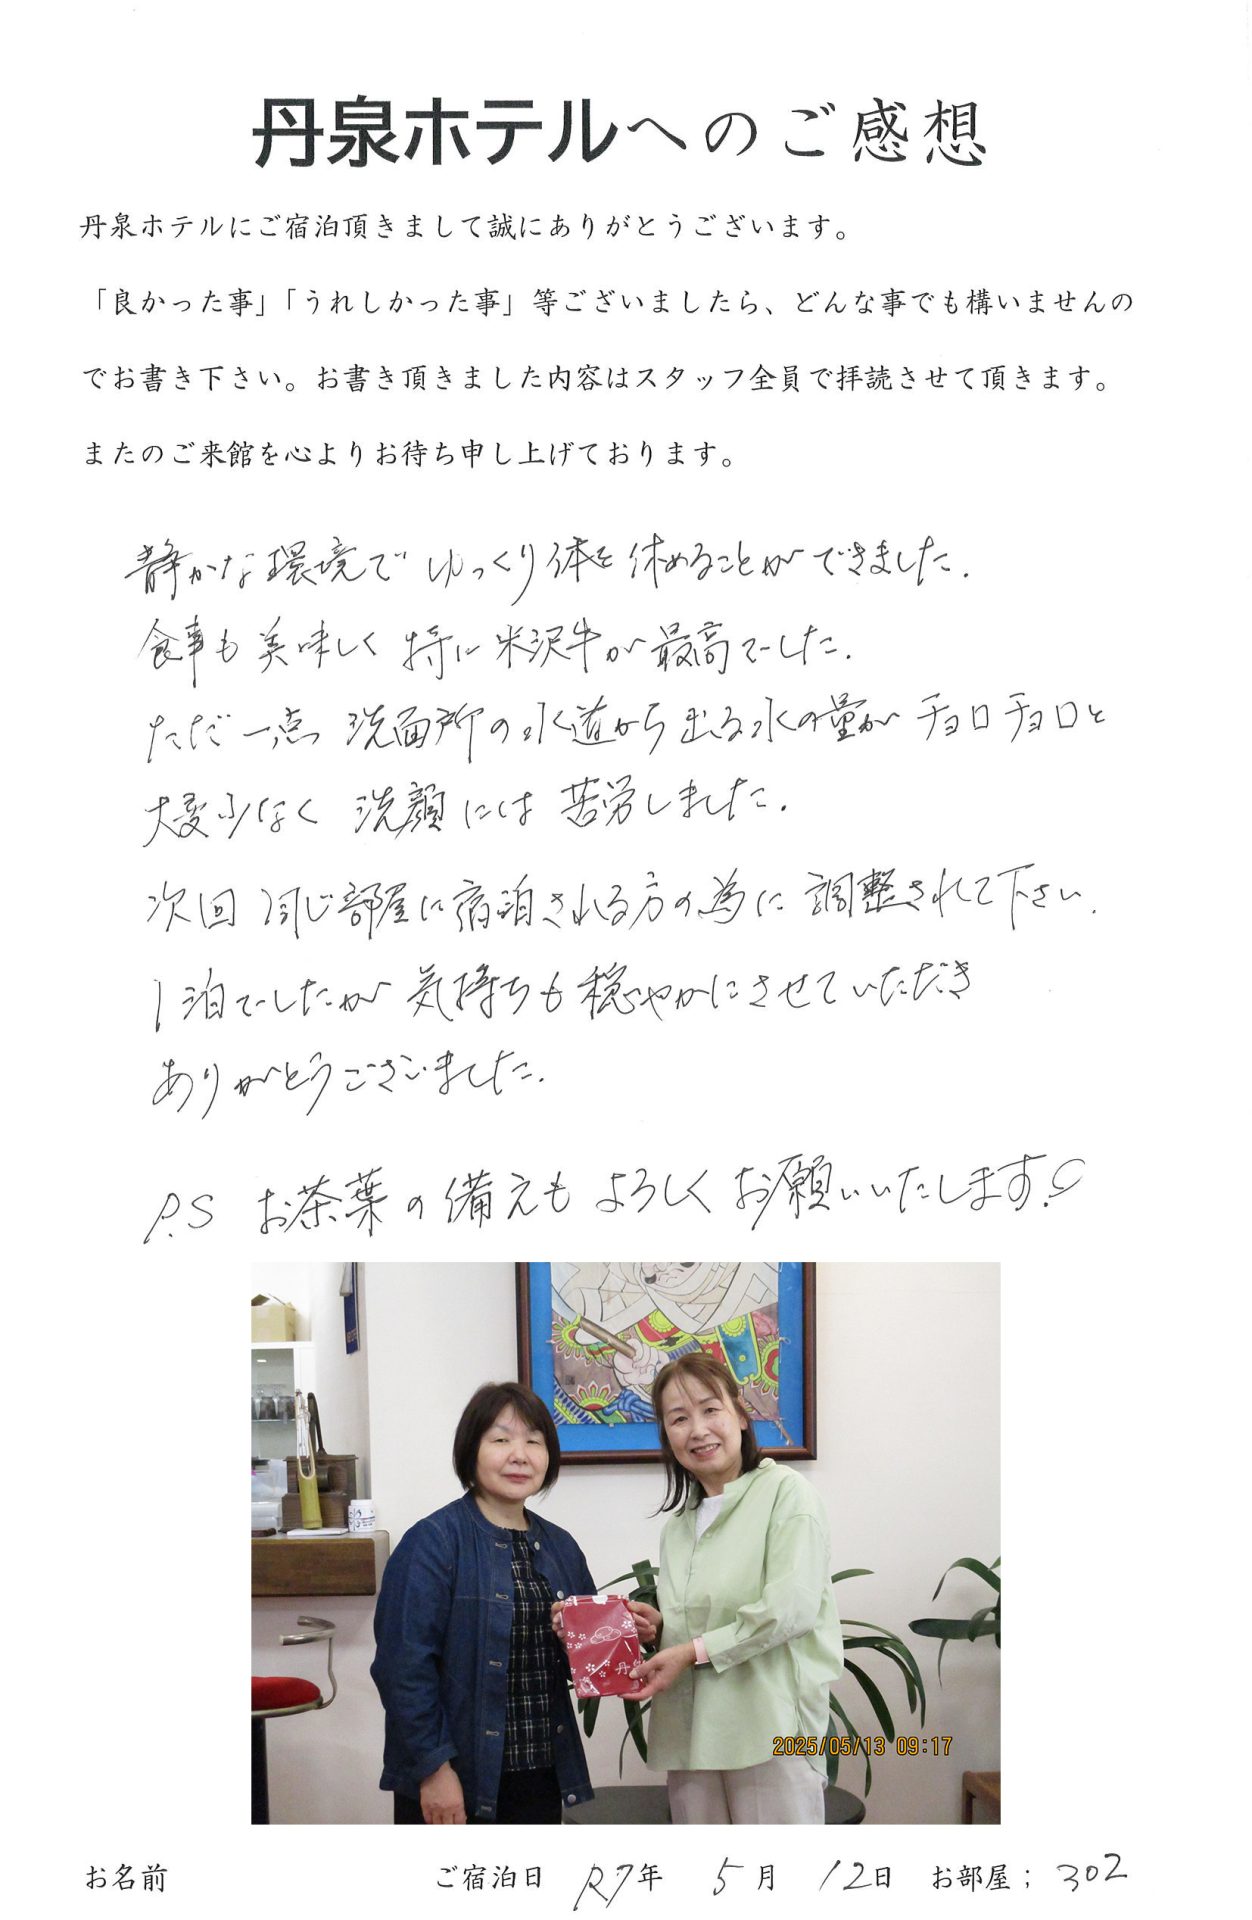 丹泉ホテルへのご感想
丹泉ホテルにご宿泊頂きまして誠にありがとうございます。
「良かった事」「うれしかった事」等ございましたら、どんな事でも構いませんの
でお書き下さい。お書き頂きました内容はスタッフ全員で拝読させて頂きます。
またのご来館を心よりお待ち申し上げております。
静かな環境でゆっくり体を休めることができました.
食事も美味しく 特に米沢牛が最高でした.
ただ一点 洗面所の水道から出る水の量がチョロチョロと
大変少なく 洗顔には苦労しました.
次回同じ部屋に宿泊される方の為に調整されて下さい.
1泊でしたが気持ちも穏やかにさせていただき
ありがとうございました.
P.S お茶葉の備えもよろしくお願いいたします!
丹
2025/05/13 09:17
お名前 ご宿泊日 R7年 5月 12日 お部屋; 302